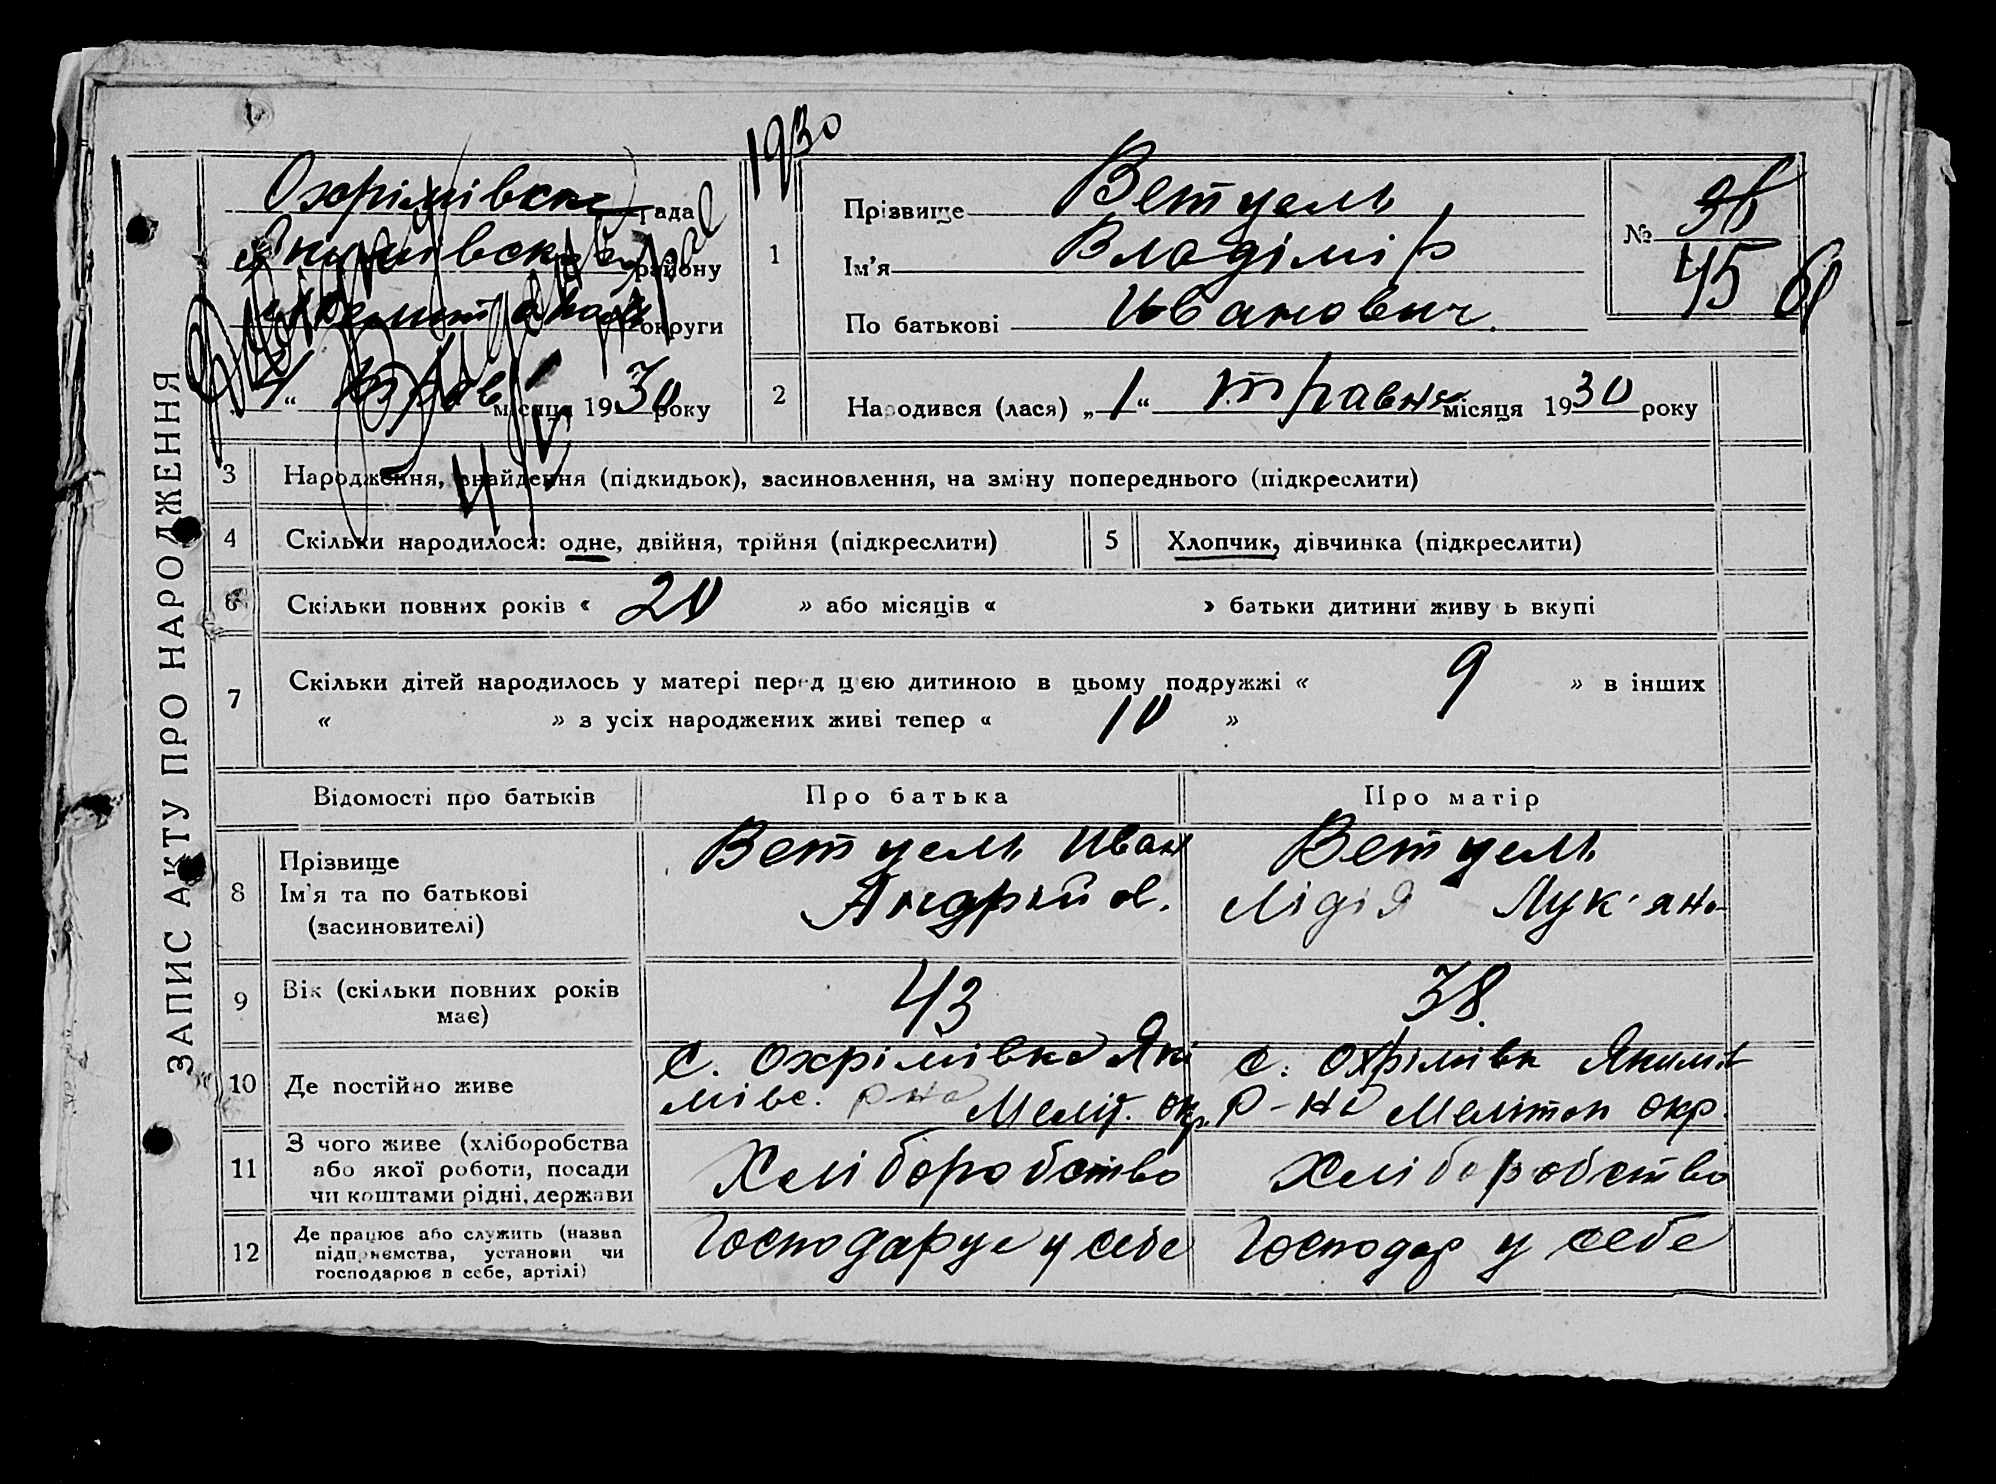 1930
ЗАПИС АКТУ ПРО НАРОДЖЕННЯ
Охрімівська Рада
Якимівськ району
Мелитопол округи
місяця 1930 року
1
Прізвище Ветцель
Ім'я Владімір
По батькові Иванович.
№ 36
45
2
Народився (лася) „1“ травня місяця 1930 року
3 Народження, знайдення (підкидьок), засиновлення, на зміну попереднього (підкреслити)
4 Скільки народилося: одне, двійня, трійня (підкреслити)
5 Хлопчик, дівчинка (підкреслити)
6 Скільки повних років « 20 » або місяців « » батьки дитини живуть вкупі
7 Скільки дітей народилось у матері перед цією дитиною в цьому подружжі « 9 » в інших
« » з усіх народжених живі тепер « 10 »
Відомості про батьків Про батька Про матір
8 Прізвище
Ім'я та по батькові
(засиновителі)
Ветцель Иван
Андрійов.
Ветцель
Лідія Лук'яно
9 Вік (скільки повних років має)
43
38.
10 Де постійно живе
с. Охрімівка Які
мівс. р-на Меліт. окр.
с. Охрімівк Якимів
р-на Мелітоп окр.
11 З чого живе (хліборобства
або якої роботи, посади
чи коштами рідні, держави
Хліборобство
Хліборобство
12 Де працює або служить (назва
підприємства, установи чи
господарює в себе, артілі)
Господарує у себе
Господар у себе